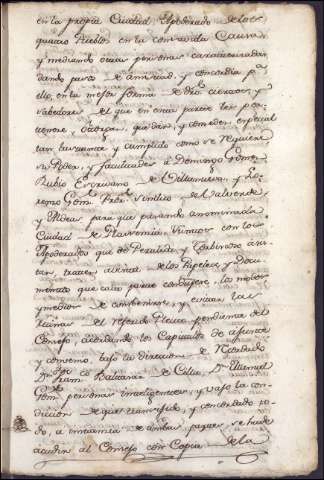 en la propia Ciudad Apoderado de los
quatro Pueblos en la concavida Causa
y mediando otras personas caracterizadas
dando paso de amistad, y concordia p.a
ello, en la mejor forma de dro cierzos, y
sabedores del que en esta parte les per-
tenece, otorgan, que dan, y conceden especial
tan bastante y cumplido como se requiera
su Poder, y facultades a Domingo Gomez
Rubio Escrivano de Villanueva, y Lo-
renzo Gom. Pror Sindico de Valverde
y Aldeas para que pasando a nominada
Ciudad de Plasencia, Juntos con los
Apoderados que de Peraleda y
tratar, a vista de los Papeles, y Docu-
mentos que cada parte conduzca, los modos
y medios de combenirse, y evitar las
del referido Pleito pendiente del
Consejo, acordando los Capitulos de ajuste
y convenio, bajo la Direccion de Letrados
Dn Juan Balthasar de Celis, Dn Manuel
Gom. personas inteligentes, y vajo la con-
dicion de que transijido, y concordado to-
do, a instancia de ambas partes se ha de
acudir al Consejo con Copia de la